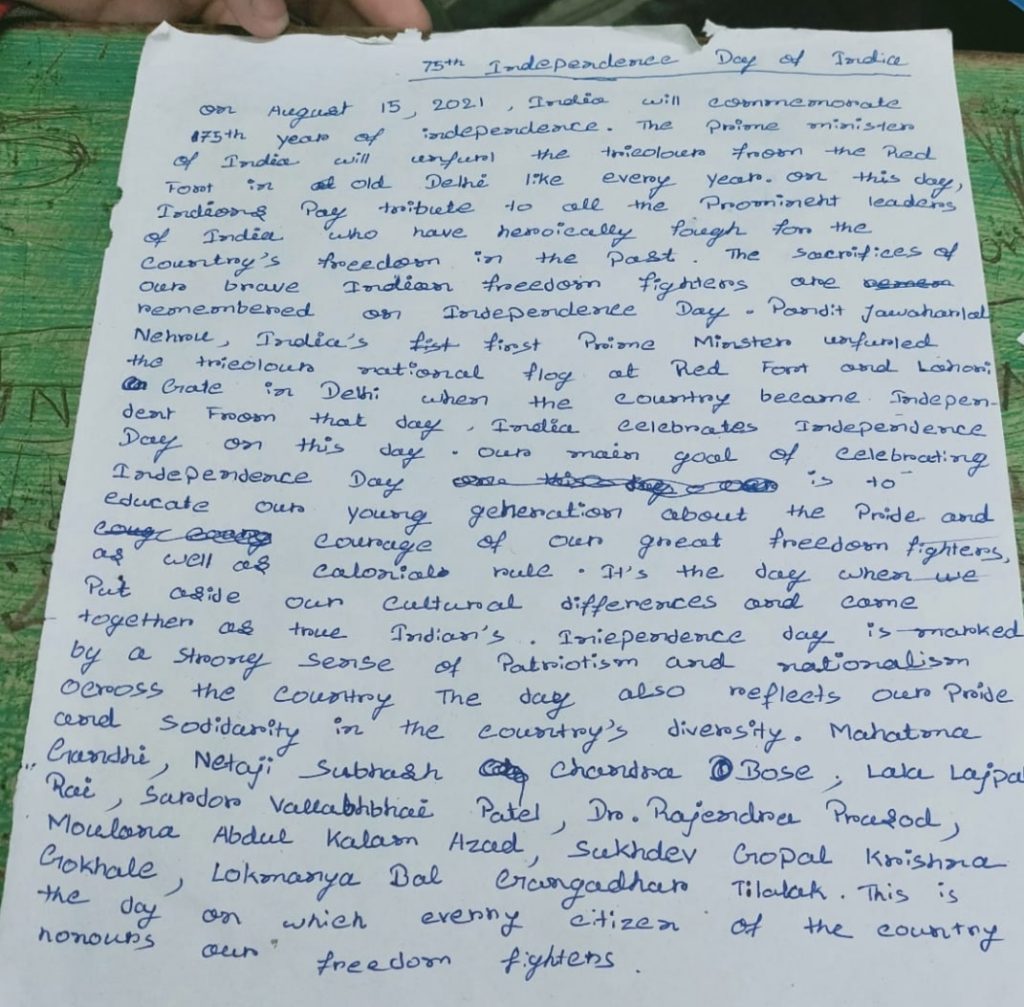 75th Independence Day of India
on August 15, 2021, India will commemorate
75th year of independence. The Prime minister
of India will unfurl the tricolour from the Red
Fort in old Delhi like every year. on this day,
Indians Pay tribute to all the Prominent leaders
of India who have heroically fough for the
country's freedom in the past. The sacrifices of
our brave Indian freedom fighters are
remembered on Independence Day. Pandit Jawaharlal
Nehru, India's first Prime Minster unfurled
the tricolour national flog at Red Fort and Lahori
Gate in Delhi when the country became Indepen-
dent From that day, India celebrates Independence
Day on this day. our main goal of celebrating
Independence Day is to
educate our young generation about the Pride and
courage of our great freedom fighters,
as well as calonials rule. It's the day when we
Put aside our cultural differences and come
together as true Indian's. Iniependence day is marked
by a strong sense of Patriotism and nationalism
across the country The day also reflects our Pride
and sodidarity in the country's diversity. Mahatma
Gandhi, Netaji Subhash Chandra Bose, Lala Lajpa
Rai, Sardar Vallabhbhai Patel, Dr. Rajendra Prasad,
Moulana Abdul Kalam Azad, Sukhdev Gopal Krishna
Gokhale, Lokmanya Bal Gangadhar Tilalak. This is
the day on which everny citizen of the country
honours our freedom fighters.